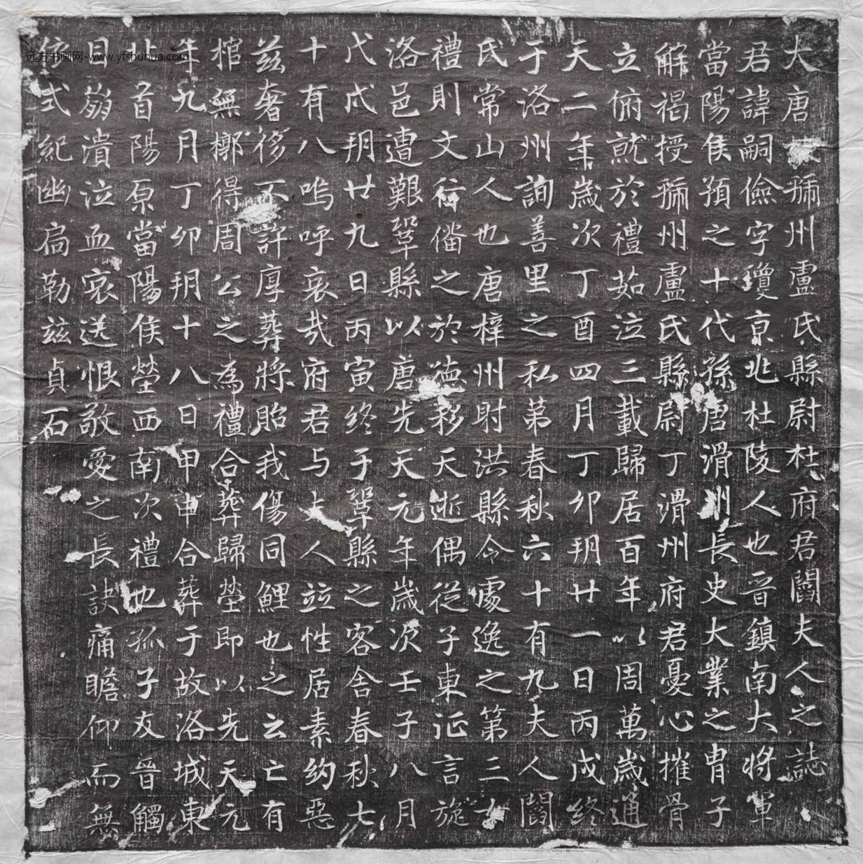 大唐故𧇭州盧氏縣尉杜府君閻夫人之誌
君諱嗣儉字瓊京兆杜陵人也晉鎮南大將軍
當陽侯預之十代孫唐滑州長史大業之胄子
解褐授𧇭州盧氏縣尉丁滑州府君憂心摧骨
立俯就於禮茹泣三載歸居百年以周萬歲通
天二年歲次丁酉四月丁卯玥廿一日丙戌終
于洛州詢善里之私第春秋六十有九夫人閻
氏常山人也唐梓州射洪縣令處逸之第三女
禮則文行偕之於德移天逝偶從子東征言旋
洛邑遭艱鞏縣以唐先天元年歲次壬子八月
戊戌玥廿九日丙寅終于鞏縣之客舍春秋七
十有八嗚呼哀哉府君与夫人並性居素約惡
兹奢侈不許厚葬將貽我傷同鯉也之云亡有
棺無槨得周公之為禮合葬歸塋即以先天元
年九月丁卯玥十八日甲申合葬于故洛城東
北首陽原當陽侯塋西南次禮也孤子友晉觸
目崩潰泣血哀送恨敬愛之長訣痛瞻仰而無
依式紀幽扃勒兹貞石
www.yfshuhua.com